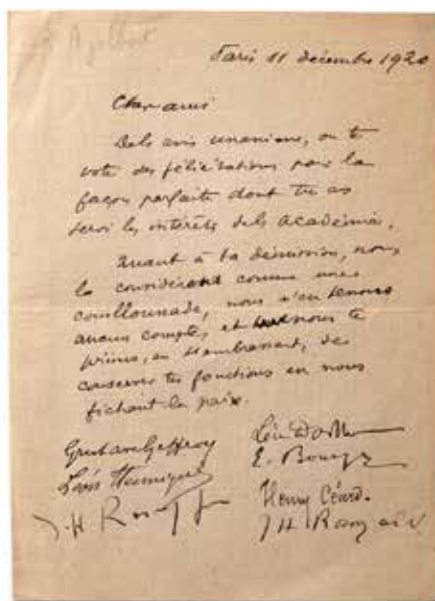 Ajalbert
Paris 11 décembre 1920
Cher ami
De l'avis unanime, on te
vote des félicitations pour la
façon parfaite dont tu as
servi les intérêts de l'académie.
Quant à ta démission, nous
la considérant comme une
couillonnade, nous n'en tenons
aucun compte, et nous te
prions, en t'embrassant, de
conserver tes fonctions en nous
fichant la paix.
Gustave Geffroy
Léon Daudet
Léon Hennique
E. Bourges
Henry Céard.
J.-H. Rosny
J H Rosny aîné